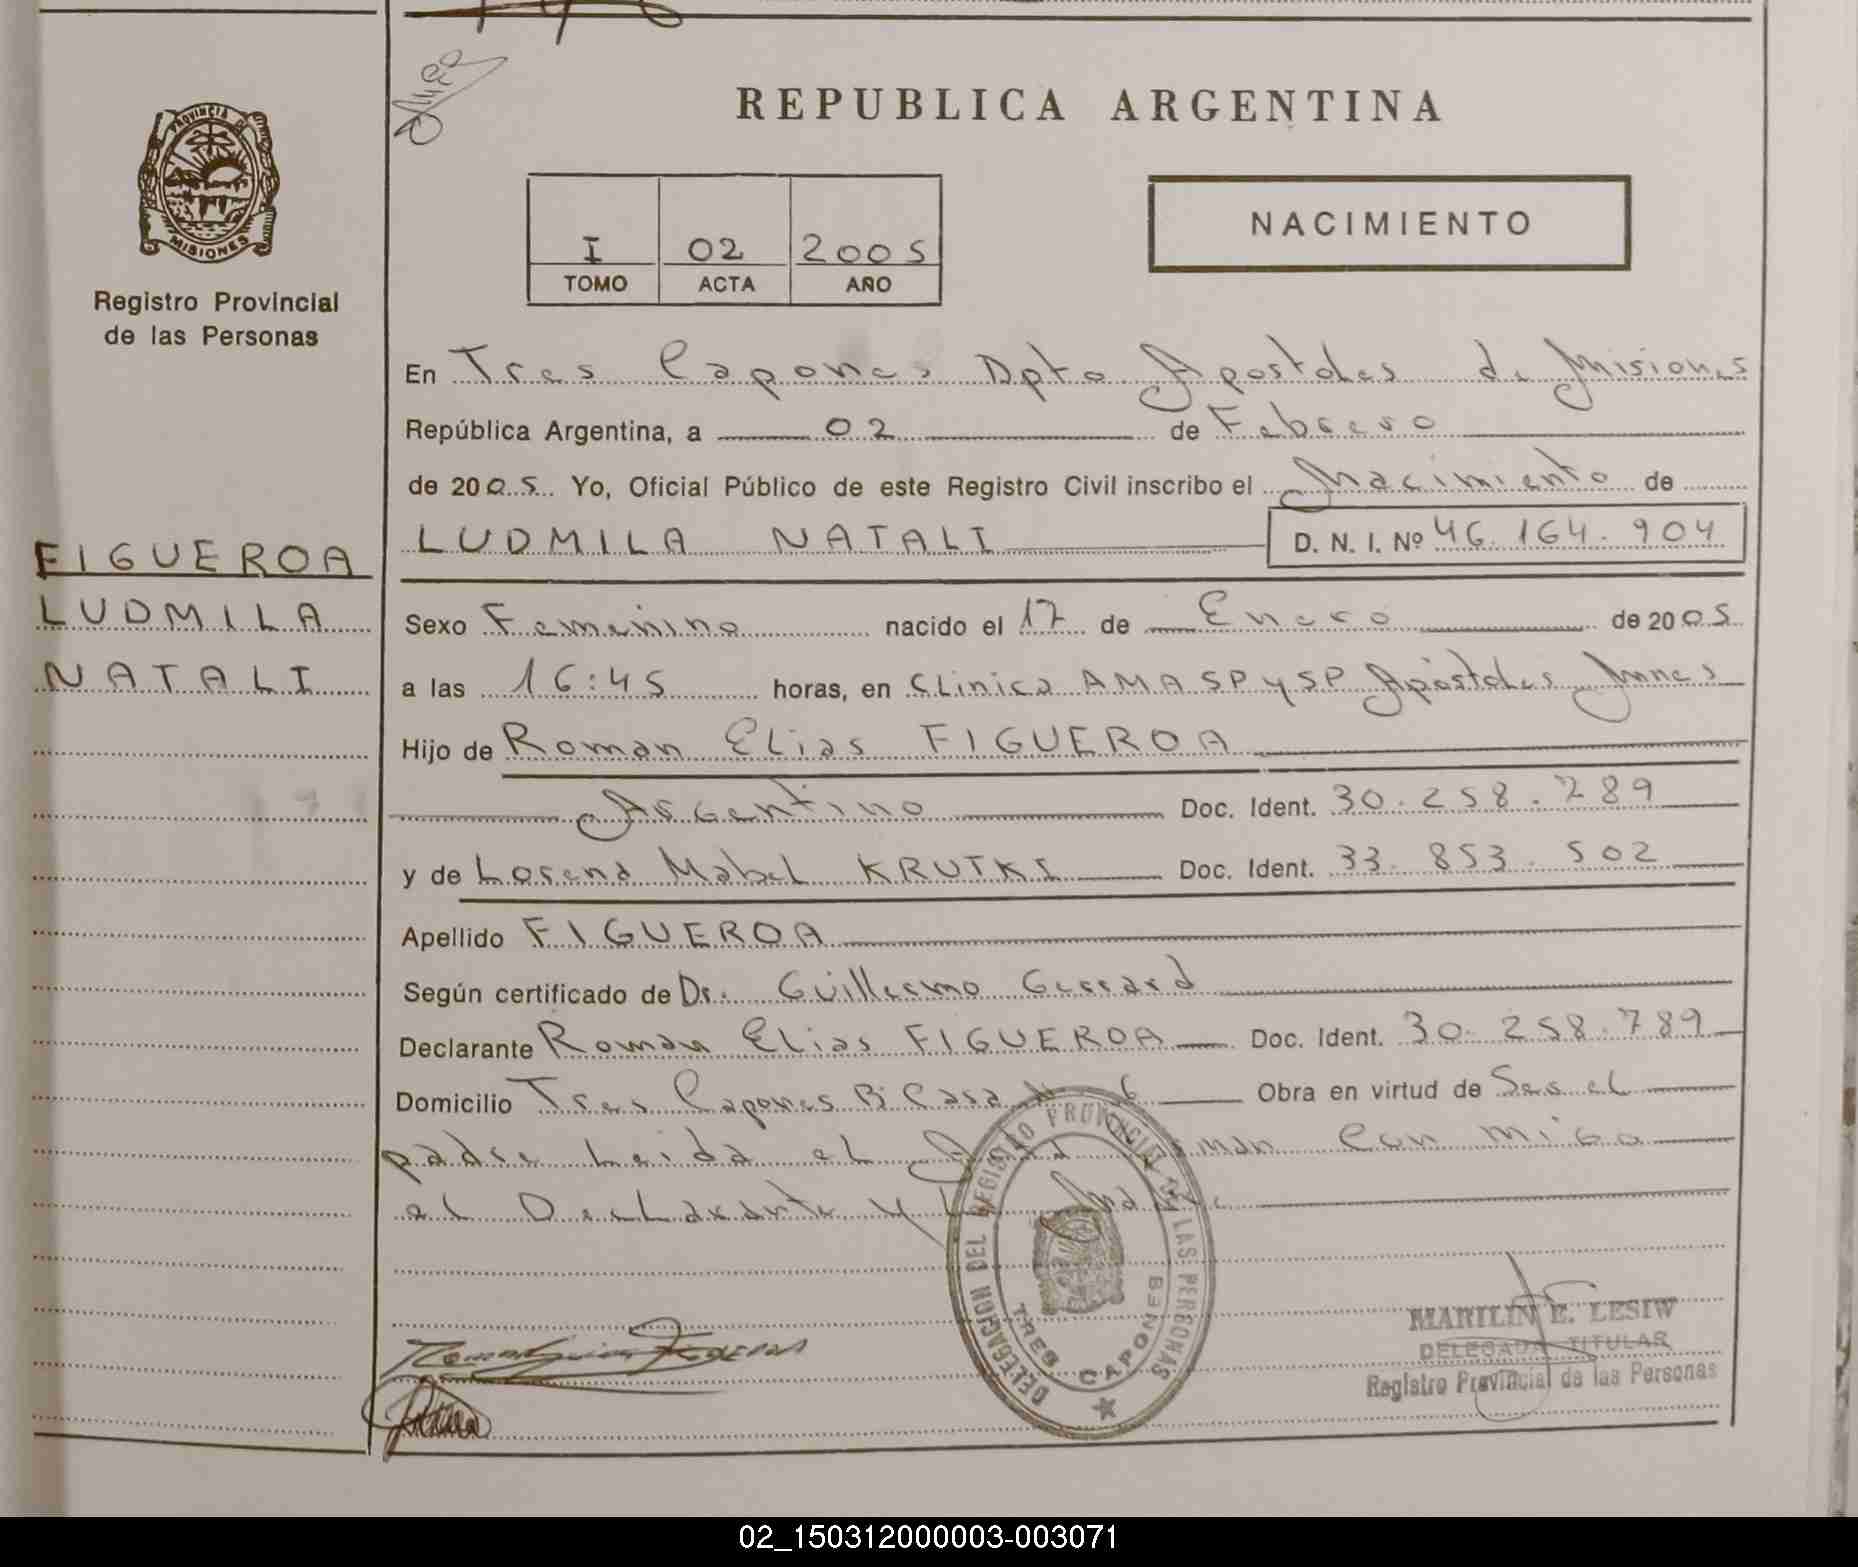 PROVINCIA DE
MISIONES
Registro Provincial
de las Personas
FIGUEROA
LUDMILA
NATALI
REPUBLICA ARGENTINA
I 02 2005
TOMO ACTA AÑO
NACIMIENTO
En Tres Capones Dpto Apostoles de Misiones
República Argentina, a 02 de Febrero
de 2005 Yo, Oficial Público de este Registro Civil inscribo el Nacimiento de
LUDMILA NATALI D. N. I. Nº 46.164.904
Sexo Femenino nacido el 17 de Enero de 2005
a las 16:45 horas, en Clinica AMASP y SP Apóstoles Mnes
Hijo de Roman Elias FIGUEROA
Argentino Doc. Ident. 30.258.789
y de Lorena Mabel KRUTKI Doc. Ident. 33.853.502
Apellido FIGUEROA
Según certificado de Dr. Guillermo Gerrard
Declarante Roman Elias FIGUEROA Doc. Ident. 30.258.789
Domicilio Tres Capones Bº Casa Nº 6 Obra en virtud de Ser el
padre Leida el Acta Firman Con migo
el Declarante y la Madre
DELEGACION DEL REGISTRO PROVINCIAL DE LAS PERSONAS
TRES CAPONES
MARILIN E. LESIW
DELEGADA TITULAR
Registro Provincial de las Personas
02_150312000003-003071